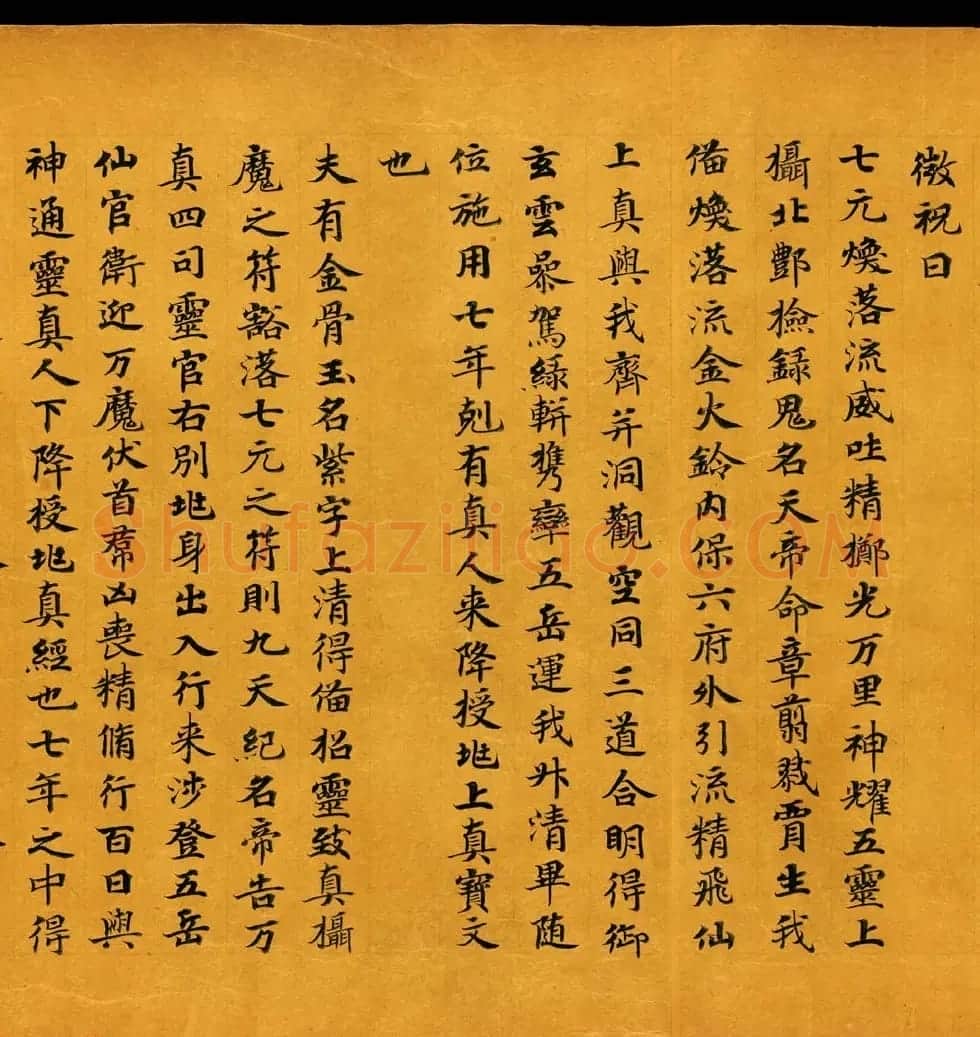 徴祝曰
七元煥落流威吐精擲光万里神耀五靈上
攝北酆撿録鬼名天帝命章翦戮冐生我
俻煥落流金火鈴内保六府外引流精飛仙
上真與我齊并洞觀空同三道合明得御
玄雲飛駕緑軿携宰五岳運我升清畢随
位施用七年剋有真人来降授兆上真寶文
也
夫有金骨玉名紫字上清得俻招靈致真攝
魔之符豁落七元之符則九天紀名帝告万
真四司靈官右别兆身出入行来涉登五岳
仙官衛迎万魔伏首群凶喪精脩行百日與
神通靈真人下降授兆真經也七年之中得
Shufaziliao.COM